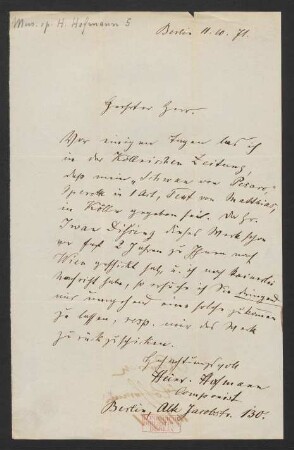 Mus. ep. H. Hofmann 5
Berlin 11. 10. 71.
Geehrter Herr.
Vor einigen Tagen las ich
in der Kölnischen Zeitung,
daß mein „Schwan von
Operette in 1 Act, Text von Matthias,
in Köln gegeben sei. Da Hr.
Iwan dieses Werk schon
vor fast 2 Jahren zu Ihnen nach
Wien geschickt hat, u. ich noch keinerlei
Nachricht habe, so ersuche ich Sie dringend
mir umgehend eine solche zukommen
zu lassen, resp. mir das Werk
zurückzuschicken.
Hochachtungsvoll
Heinr. Hofmann
Componist
Berlin, Alte Jacobstr. 130.